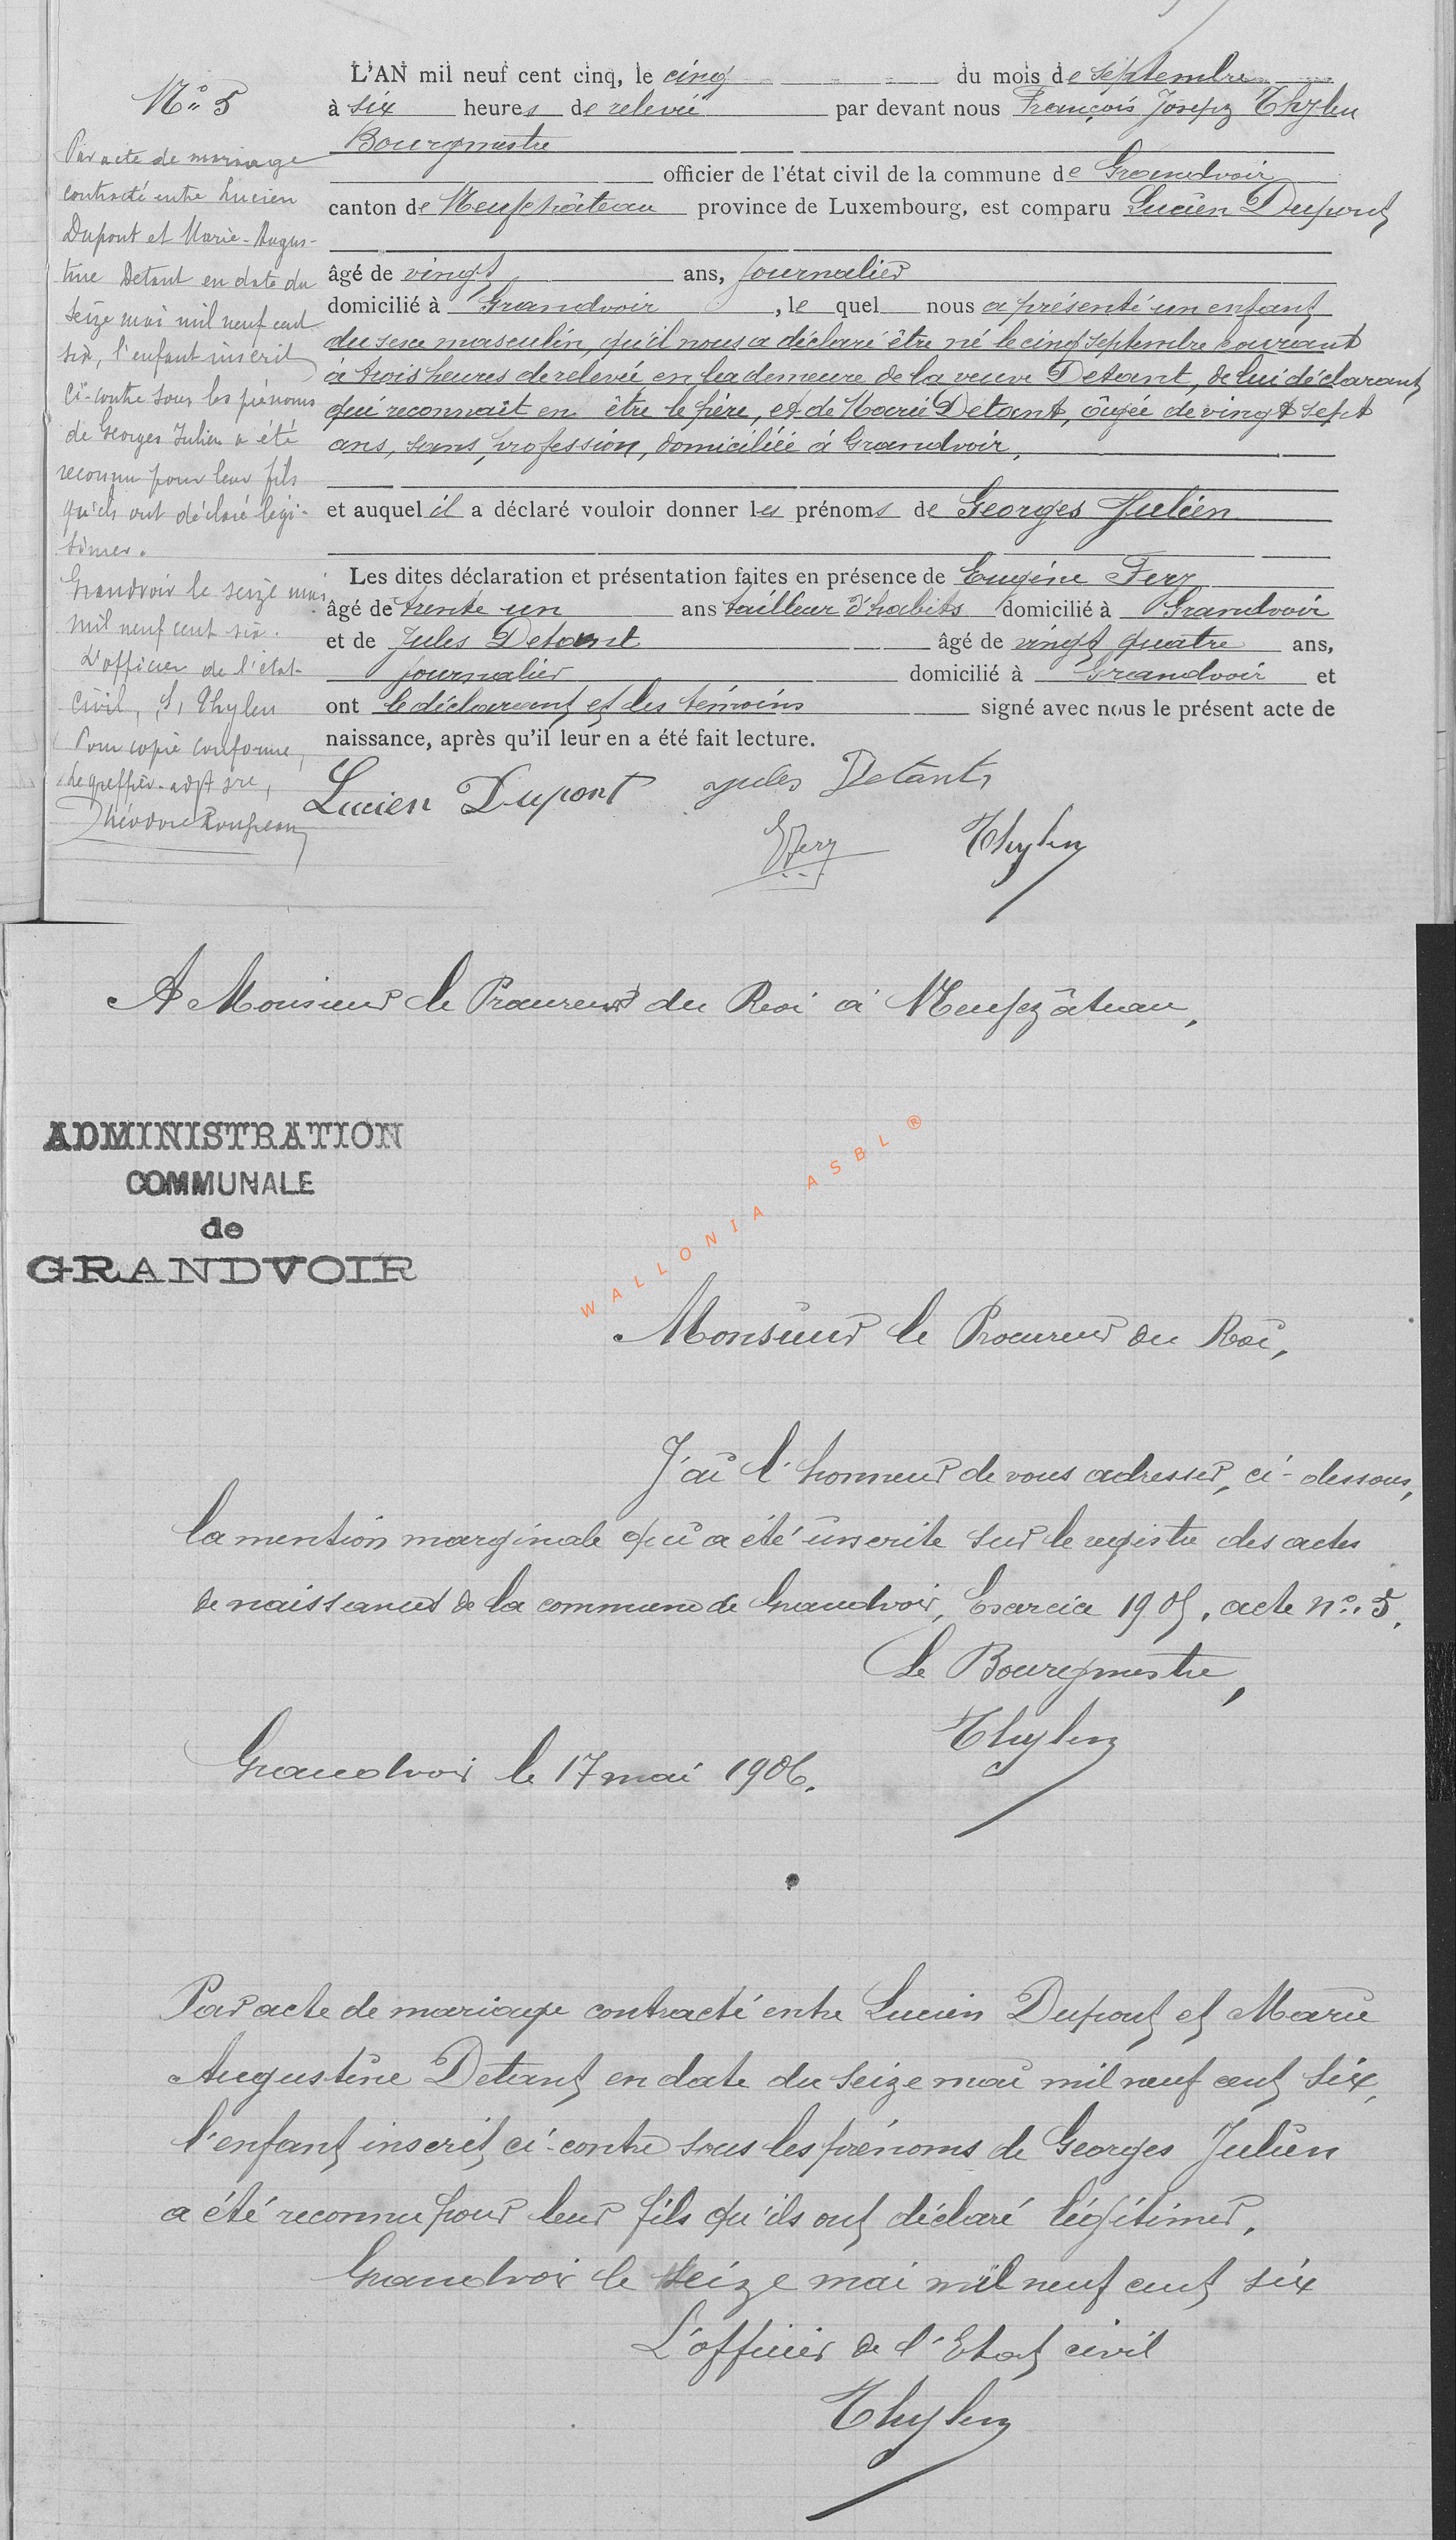 N° 5
Par acte de mariage
contracté entre Lucien
Dupont et Marie-Augus-
tine Detant en date du
seize mai mil neuf cent
six, l'enfant inscrit
ci-contre sous les prénoms
de Georges Julien a été
reconnu pour leur fils
qu'ils ont déclaré légi-
timer.
Grandvoir le seize mai
mil neuf cent six.
L'officier de l'état-
civil, Thylen
Pour copie conforme,
Le greffier-adjt
Théodore
L'AN mil neuf cent cinq, le cinq du mois de septembre
à six heures de relevée par devant nous François Joseph Thylen
Bourgmestre
officier de l'état civil de la commune de Grandvoir
canton de Neufchâteau province de Luxembourg, est comparu Lucien Dupont
âgé de vingt ans, journalier
domicilié à Grandvoir, le quel nous a présenté un enfant
du sexe masculin, qu'il nous a déclaré être né le cinq septembre courant
à trois heures de relevée en la demeure de la veuve Detant, de lui déclarant
qui reconnait en être le père, et de Marie Detant, âgée de vingt sept
ans, sans profession, domiciliée à Grandvoir,
et auquel il a déclaré vouloir donner les prénoms de Georges Julien
Les dites déclaration et présentation faites en présence de Eugène Fery
âgé de trente un ans tailleur d'habits domicilié à Grandvoir
et de Jules Detant âgé de vingt quatre ans,
journalier domicilié à Grandvoir et
ont le déclarant et les témoins signé avec nous le présent acte de
naissance, après qu'il leur en a été fait lecture.
Lucien Dupont Jules Detant
E Fery Thylen
A Monsieur le Procureur du Roi à Neufchâteau,
ADMINISTRATION
COMMUNALE
de
GRANDVOIR
WALLONIA ASBL ®
Monsieur le Procureur du Roi,
J'ai l'honneur de vous adresser, ci-dessous,
la mention marginale qui a été inscrite sur le registre des actes
de naissances de la commune de Grandvoir, Exercice 1905, acte n° 5.
Le Bourgmestre,
Thylen
Grandvoir le 17 mai 1906.
Par acte de mariage contracté entre Lucien Dupont et Marie
Augustine Detant en date du seize mai mil neuf cent six,
l'enfant inscrit ci-contre sous les prénoms de Georges Julien
a été reconnu pour leur fils qu'ils ont déclaré légitimer.
Grandvoir le seize mai mil neuf cent six
L'officier de l'Etat civil
Thylen